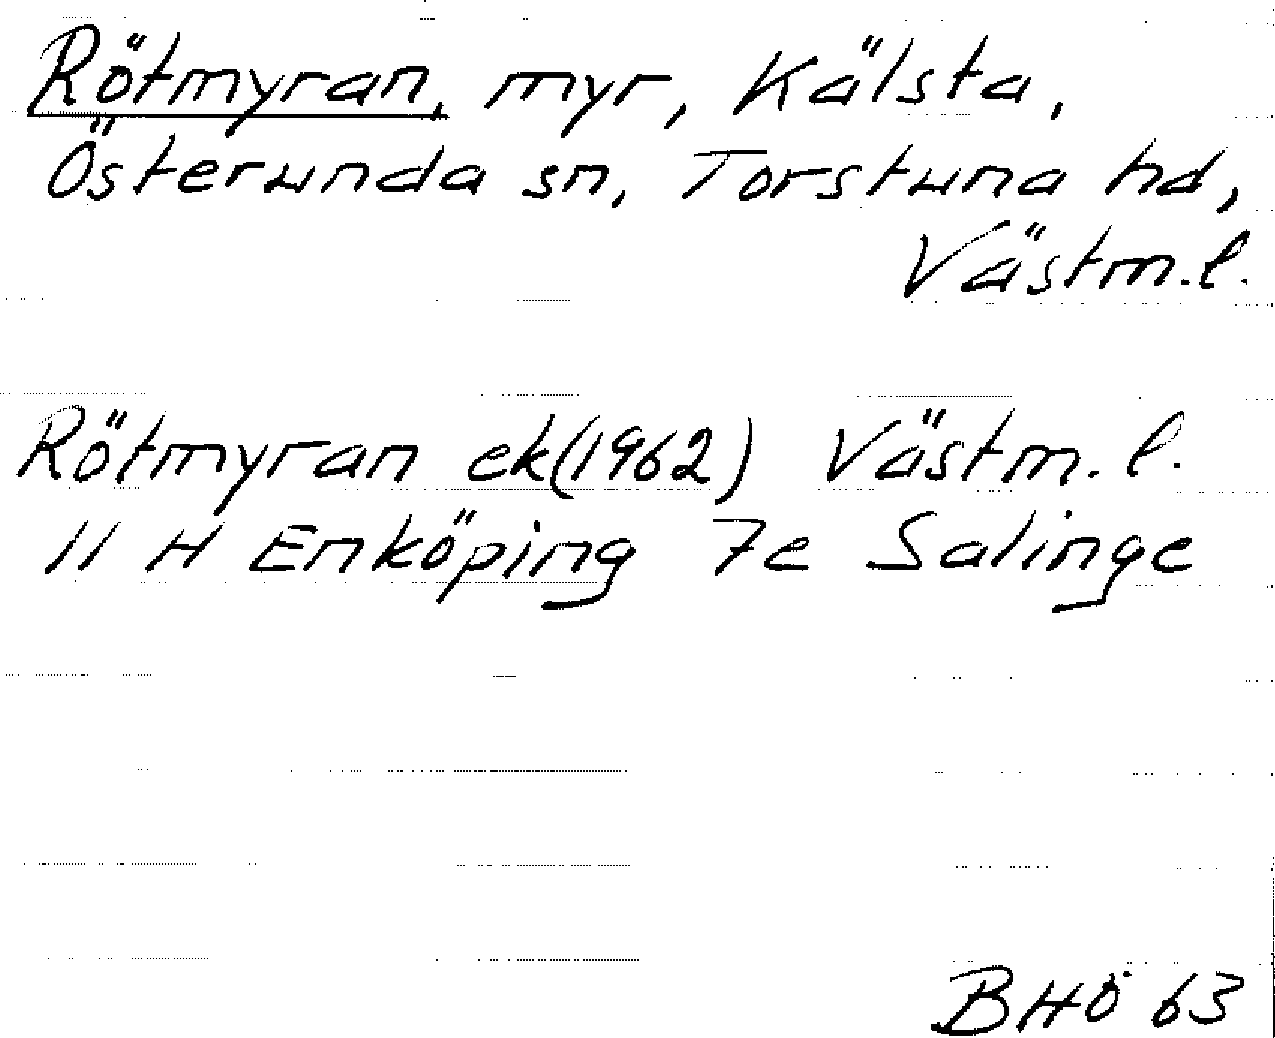 Rötmyran, myr, Kälsta,
Österunda sn, Torstuna hd,
Västm.l.
Rötmyran ek(1962) Västm. l.
11 H Enköping 7e Salinge
BHÖ 63